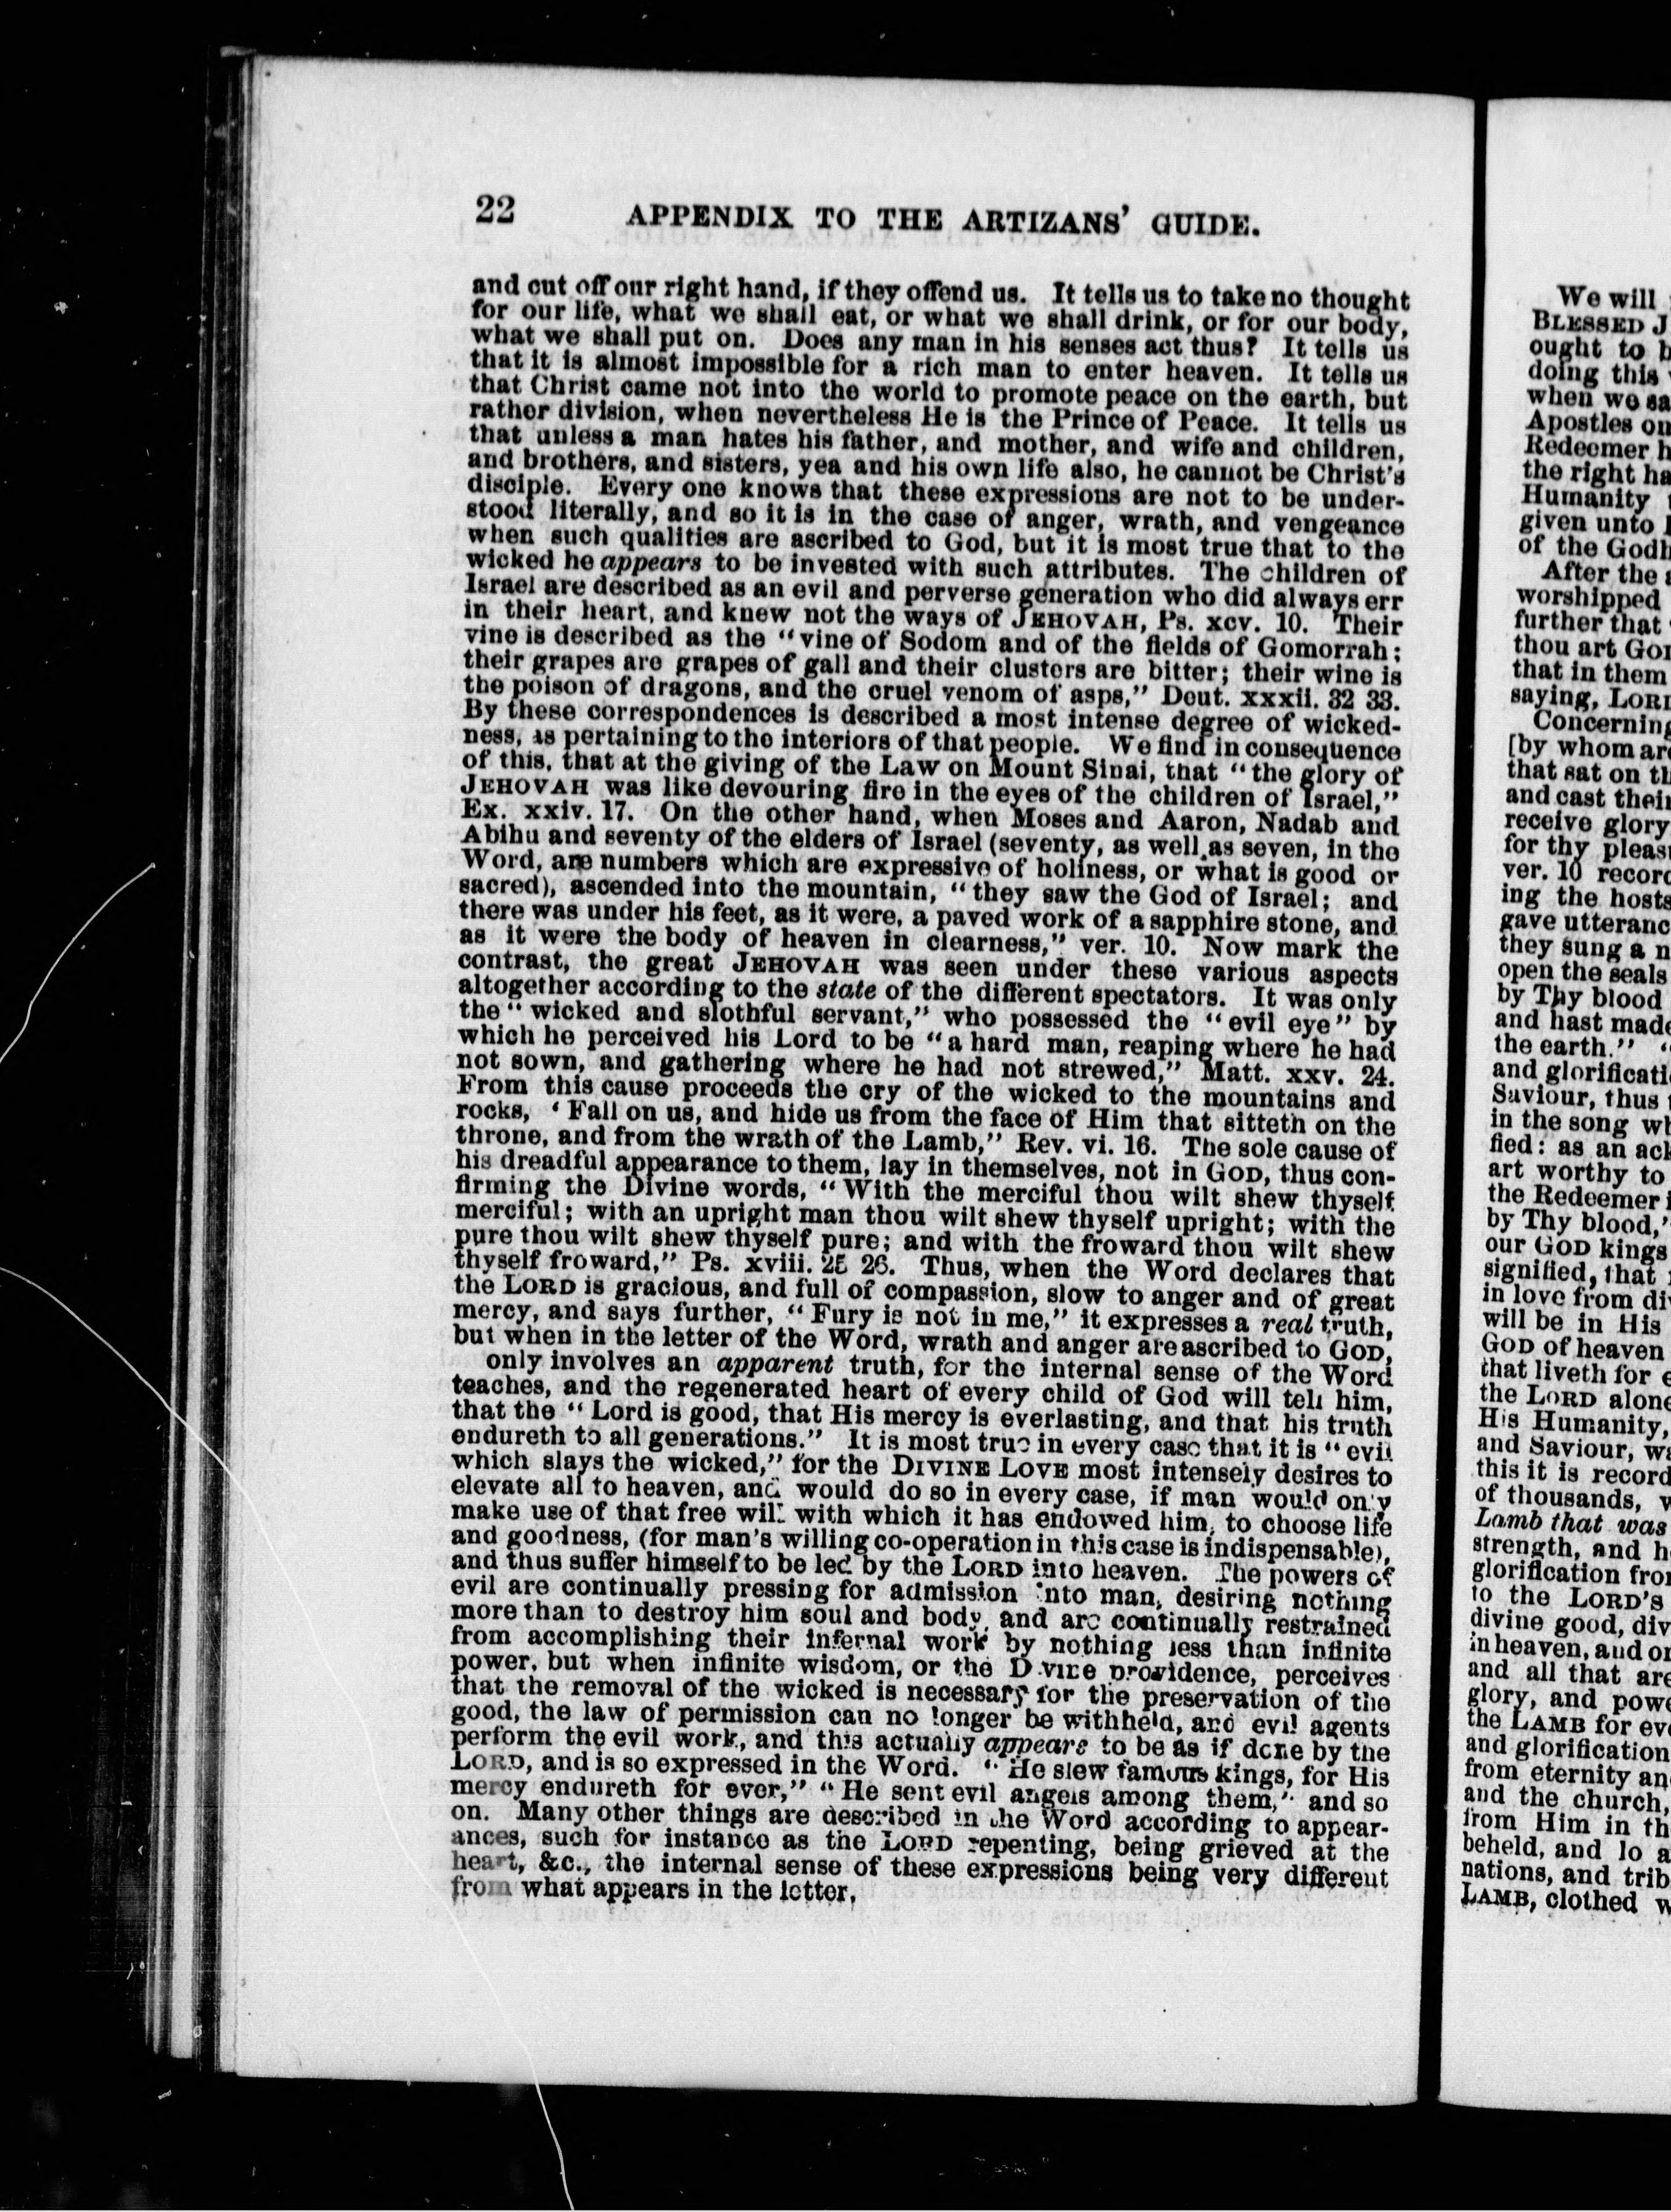 22 APPENDIX TO THE ARTIZANS' GUIDE.
and cut off our right hand, if they offend us. It tells us to take no thought
for our life, what we shall eat, or what we shall drink, or for our body,
what we shall put on. Does any man in his senses act thus? It tells us
that it is almost impossible for a rich man to enter heaven. It tells us
that Christ came not into the world to promote peace on the earth, but
rather division, when nevertheless He is the Prince of Peace. It tells us
that unless a man hates his father, and mother, and wife and children,
and brothers, and sisters, yea and his own life also, he cannot be Christ's
disciple. Every one knows that these expressions are not to be under-
stood literally, and so it is in the case of anger, wrath, and vengeance
when such qualities are ascribed to God, but it is most true that to the
wicked he appears to be invested with such attributes. The children of
Israel are described as an evil and perverse generation who did always err
in their heart, and knew not the ways of JEHOVAH, Ps. xcv. 10. Their
vine is described as the "vine of Sodom and of the fields of Gomorrah;
their grapes are grapes of gall and their clusters are bitter; their wine is
the poison of dragons, and the cruel venom of asps," Deut. xxxii. 32 33.
By these correspondences is described a most intense degree of wicked-
ness, as pertaining to the interiors of that people. We find in consequence
of this, that at the giving of the Law on Mount Sinai, that "the glory of
JEHOVAH was like devouring fire in the eyes of the children of Israel,"
Ex. xxiv. 17. On the other hand, when Moses and Aaron, Nadab and
Abihu and seventy of the elders of Israel (seventy, as well as seven, in the
Word, are numbers which are expressive of holiness, or what is good or
sacred), ascended into the mountain, "they saw the God of Israel; and
there was under his feet, as it were, a paved work of a sapphire stone, and
as it were the body of heaven in clearness," ver. 10. Now mark the
contrast, the great JEHOVAH was seen under these various aspects
altogether according to the state of the different spectators. It was only
the "wicked and slothful servant," who possessed the "evil eye" by
which he perceived his Lord to be "a hard man, reaping where he had
not sown, and gathering where he had not strewed," Matt. xxv. 24.
From this cause proceeds the cry of the wicked to the mountains and
rocks, 'Fall on us, and hide us from the face of Him that sitteth on the
throne, and from the wrath of the Lamb," Rev. vi. 16. The sole cause of
his dreadful appearance to them, lay in themselves, not in GOD, thus con-
firming the Divine words, "With the merciful thou wilt shew thyself
merciful; with an upright man thou wilt shew thyself upright; with the
pure thou wilt shew thyself pure; and with the froward thou wilt shew
thyself froward," Ps. xviii. 25 26. Thus, when the Word declares that
the LORD is gracious, and full of compassion, slow to anger and of great
mercy, and says further, "Fury is not in me," it expresses a real truth,
but when in the letter of the Word, wrath and anger are ascribed to GOD,
only involves an apparent truth, for the internal sense of the Word
teaches, and the regenerated heart of every child of God will tell him,
that the "Lord is good, that His mercy is everlasting, and that his truth
endureth to all generations." It is most true in every case that it is "evil
which slays the wicked," for the DIVINE LOVE most intensely desires to
elevate all to heaven, and would do so in every case, if man would only
make use of that free will with which it has endowed him, to choose life
and goodness, (for man's willing co-operation in this case is indispensable),
and thus suffer himself to be led by the LORD into heaven. The powers of
evil are continually pressing for admission into man, desiring nothing
more than to destroy him soul and body, and are continually restrained
from accomplishing their infernal work by nothing less than infinite
power, but when infinite wisdom, or the Divine providence, perceives
that the removal of the wicked is necessary for the preservation of the
good, the law of permission can no longer be withheld, and evil agents
perform the evil work, and this actually appears to be as if done by the
LORD, and is so expressed in the Word. "He slew famous kings, for His
mercy endureth for ever," "He sent evil angels among them," and so
on. Many other things are described in the Word according to appear-
ances, such for instance as the LORD repenting, being grieved at the
heart, &c., the internal sense of these expressions being very different
from what appears in the letter.
We will
BLESSED J
ought to b
doing this
when we sa
Apostles ou
Redeemer h
the right ha
Humanity
given unto
of the Godh
After the
worshipped
further that
thou art
that in them
saying, LORD
Concerning
[by whom are
that sat on th
and cast their
receive glory
for thy pleas
ver. 10 record
ing the hosts
gave utteranc
they sung a n
open the seals
by Thy blood
and hast made
the earth."
and glorificati
Saviour, thus
in the song wh
fied: as an ack
art worthy to
the Redeemer i
by Thy blood,"
our GOD kings
signified, that
in love from di
will be in His
GOD of heaven
that liveth for e
the LORD alone
His Humanity,
and Saviour, wa
this it is record
of thousands, w
Lamb that was
strength, and h
glorification fro
to the LORD'S
divine good, div
in heaven, and on
and all that are
glory, and powe
the LAMB for eve
and glorification
from eternity an
and the church,
from Him in th
beheld, and lo a
nations, and trib
LAMB, clothed w